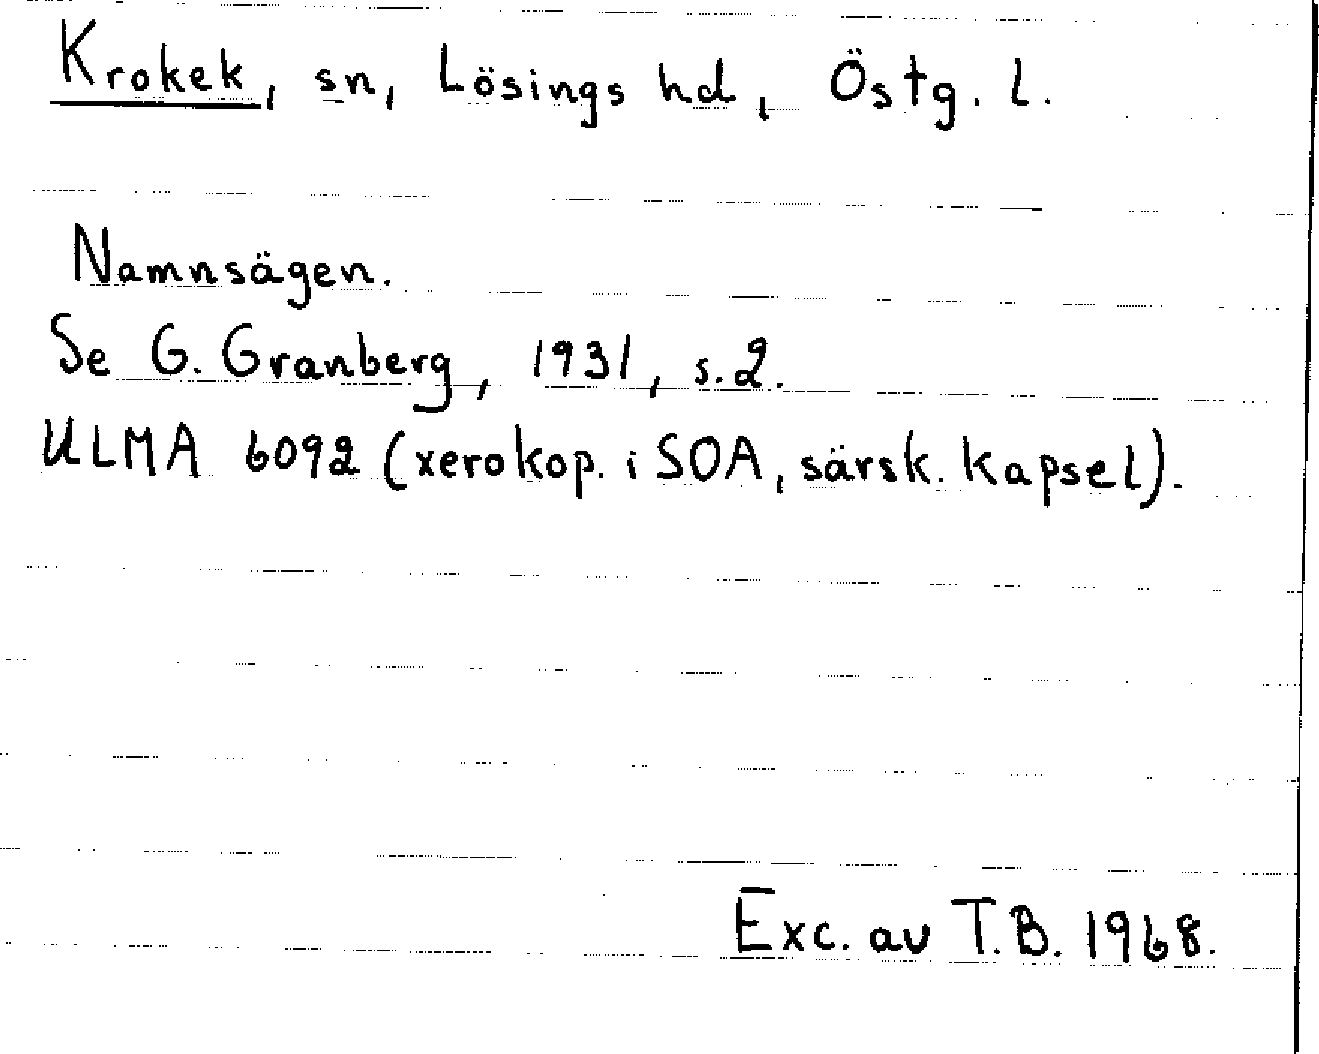 Krokek, sn, Lösings hd, Östg. l.
Namnsägen.
Se G. Granberg, 1931, s. 2.
ULMA 6092 (xerokop. i SOA, särsk. kapsel).
Exc. av T.B. 1968.